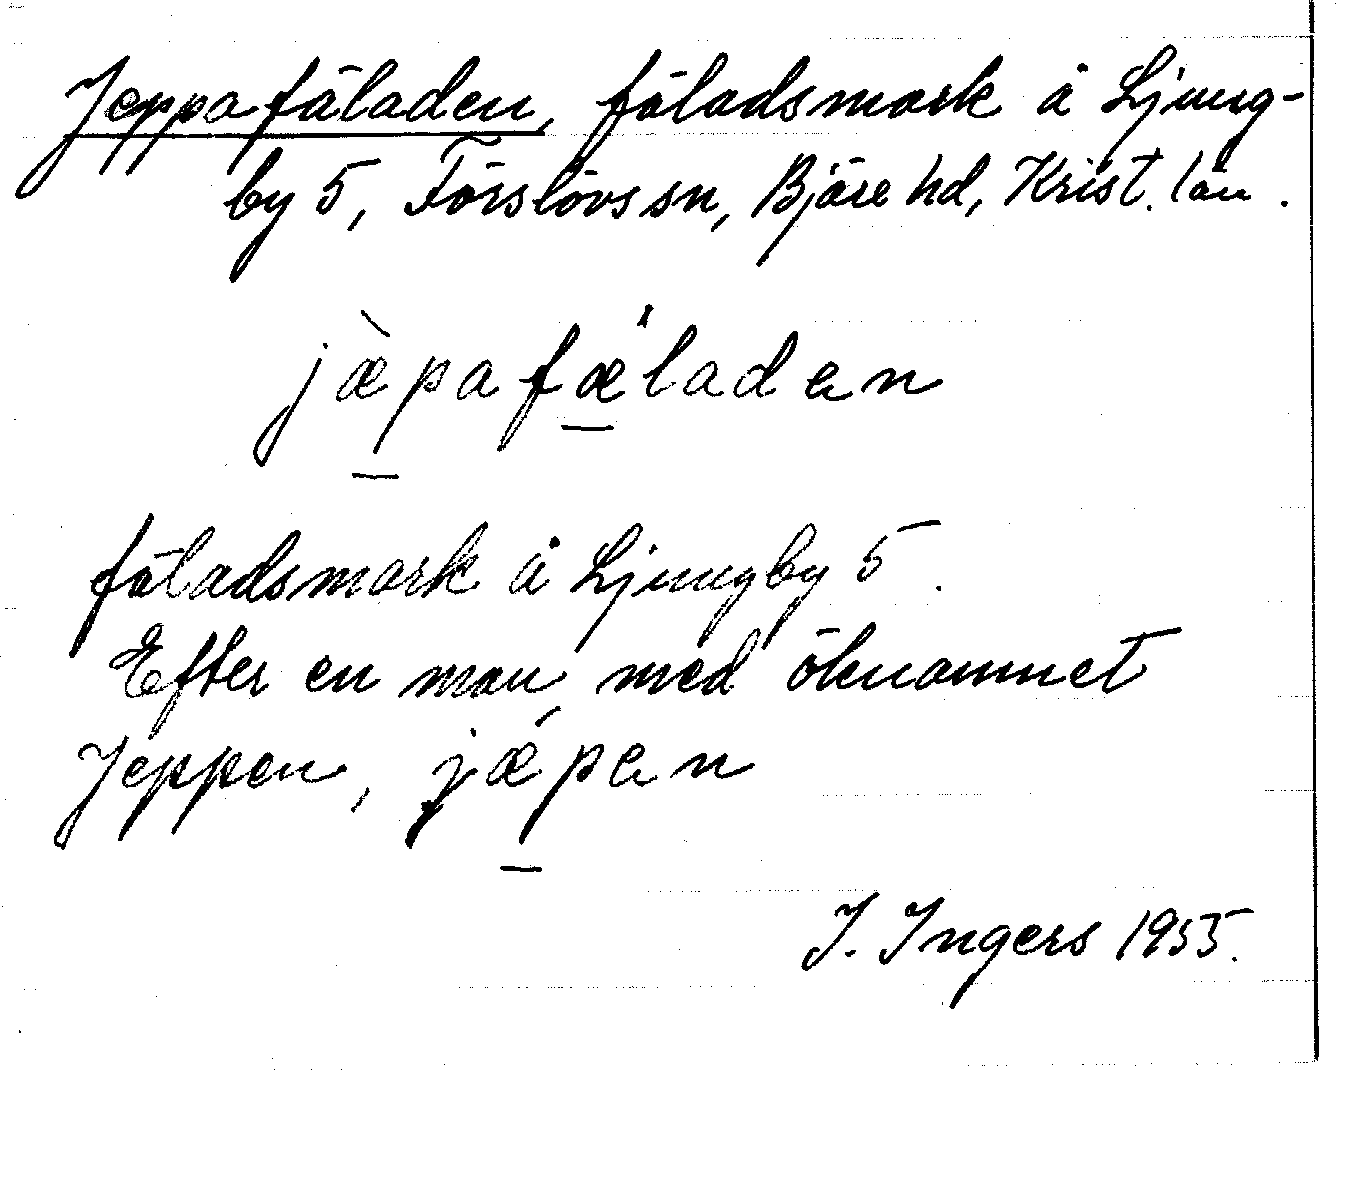 Jeppafäladen, fäladsmark å Ljung-
by 5, Förslövs sn, Bjäre hd, Krist. län.
jæ̀pafǽladən
fäladsmark å Ljungby 5.
Efter en man med öknamnet
Jeppen, jǽpən
I. Ingers 1955.